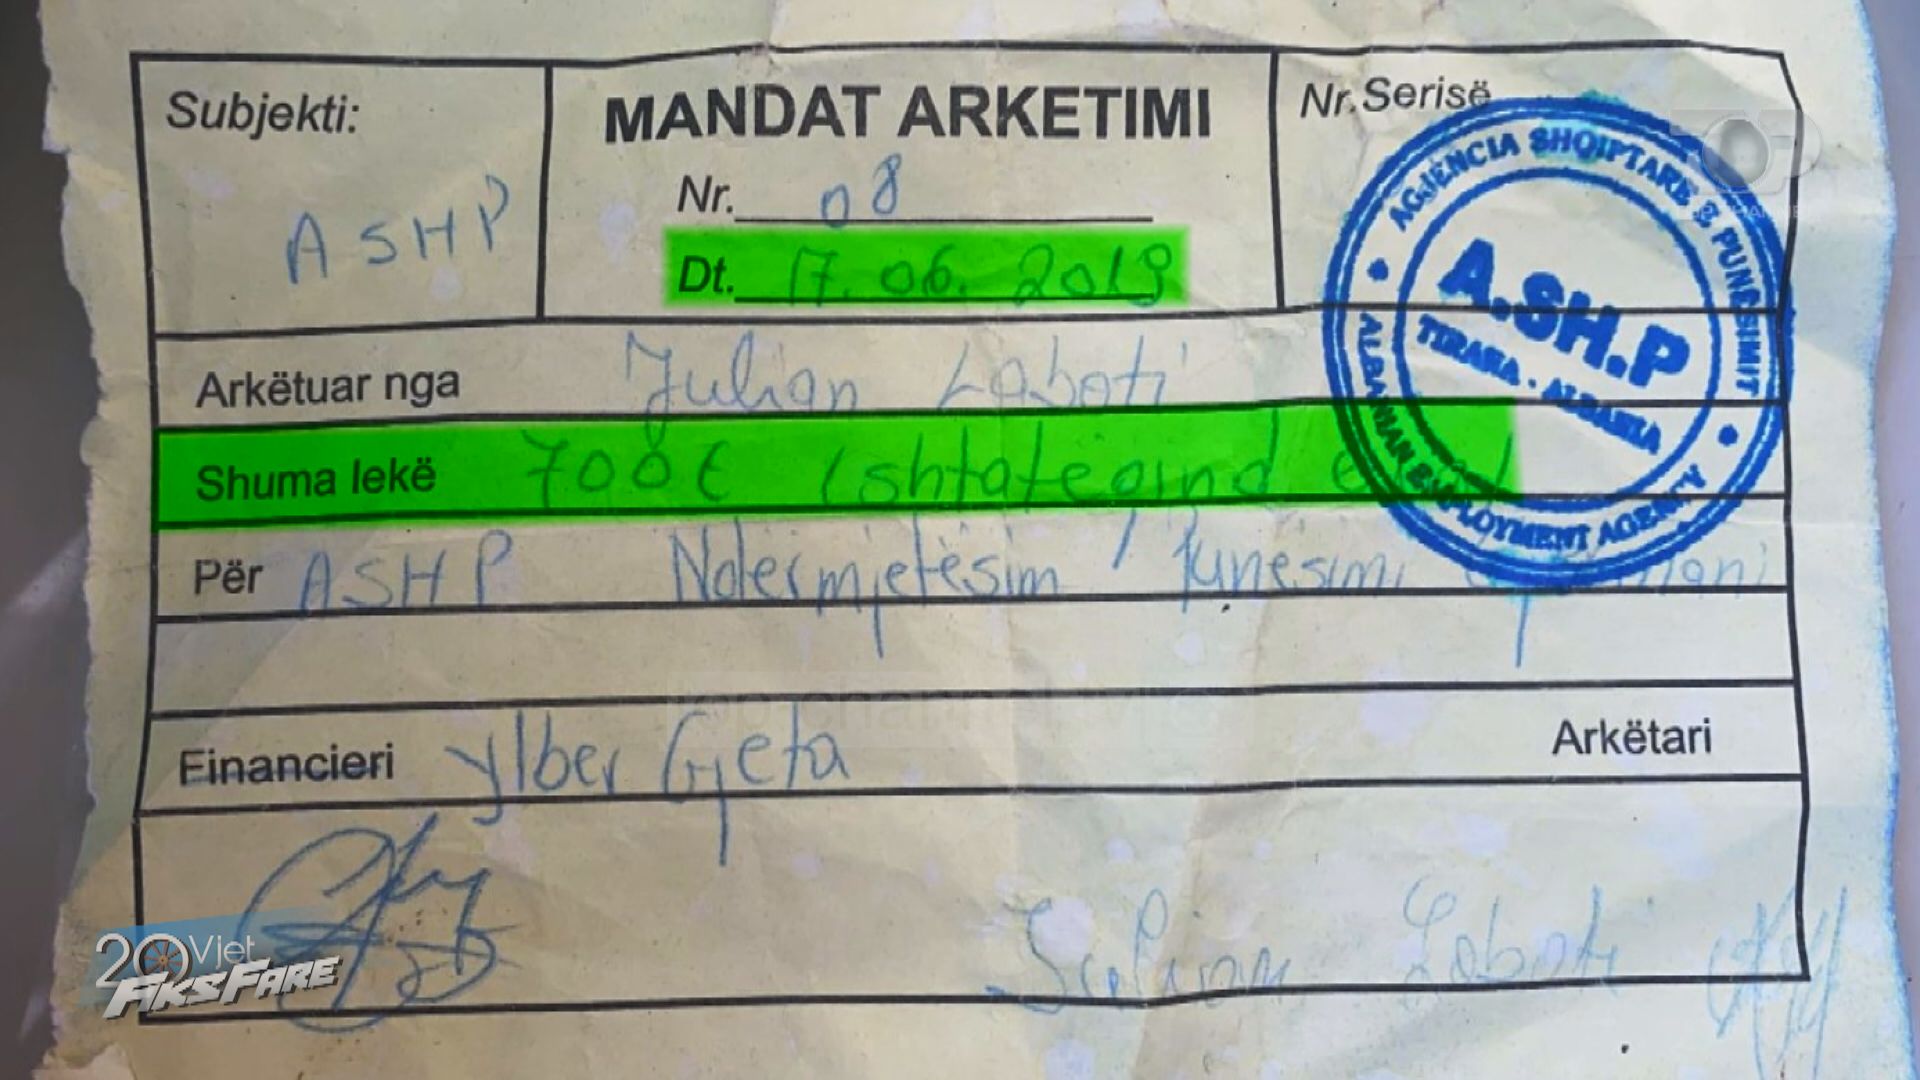 Subjekti:
ASHP
MANDAT ARKETIMI
Nr. 08
Dt. 17.06.2019
Nr.Serisë
AGJENCIA SHQIPTARE E PUNËSIMIT
A.SH.P
TIRANA · ALBANIA
ALBANIAN EMPLOYMENT AGENCY
Arkëtuar nga Julian Laboti
Shuma lekë 700€ (shtatëqind
Për ASHP Ndërmjetësim Punësimi
Financieri Ylber Gjeta
Arkëtari
Julian Laboti
20 Vjet
FIKS FARE
TOP